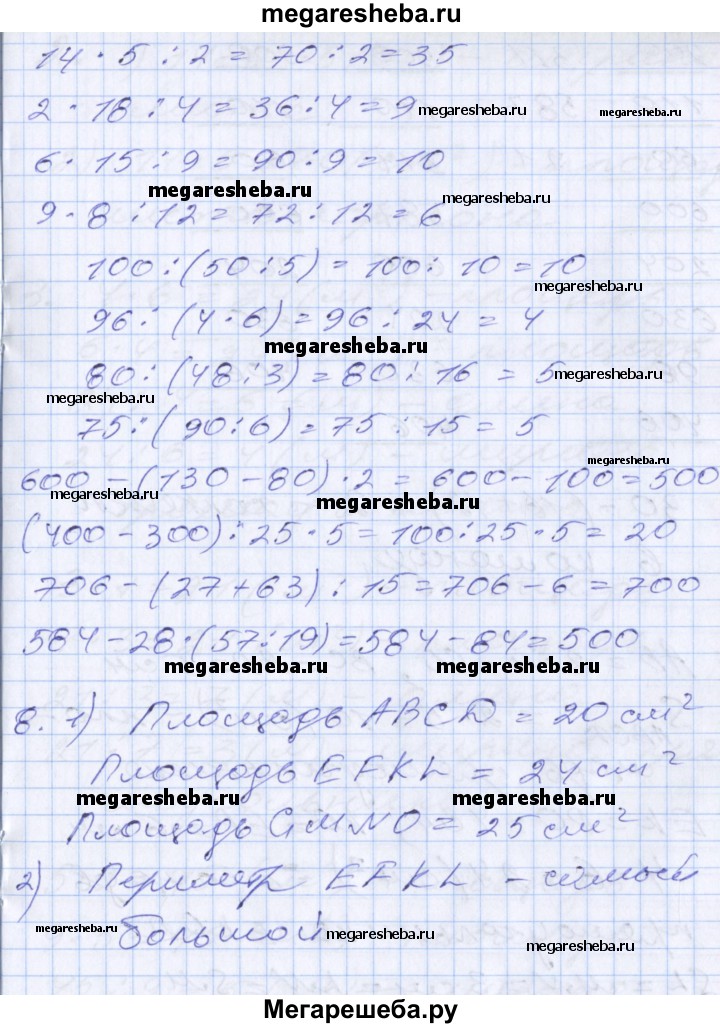 megaresheba.ru
14 · 5 : 2 = 70 : 2 = 35
2 · 18 : 4 = 36 : 4 = 9 megaresheba.ru megaresheba.ru
6 · 15 : 9 = 90 : 9 = 10
megaresheba.ru megaresheba.ru
9 · 8 : 12 = 72 : 12 = 6
100 : (50 : 5) = 100 : 10 = 10
megaresheba.ru
96 : (4 · 6) = 96 : 24 = 4
megaresheba.ru
80 : (48 : 3) = 80 : 16 = 5 megaresheba.ru
megaresheba.ru
75 : (90 : 6) = 75 : 15 = 5
megaresheba.ru
600 - (130 - 80) · 2 = 600 - 100 = 500
megaresheba.ru megaresheba.ru
(400 - 300) : 25 · 5 = 100 : 25 · 5 = 20
706 - (27 + 63) : 15 = 706 - 6 = 700
584 - 28 · (57 : 19) = 584 - 84 = 500
megaresheba.ru megaresheba.ru
8. 1) Площадь ABCD = 20 см²
Площадь EFKL = 24 см²
megaresheba.ru megaresheba.ru
Площадь GMNO = 25 см²
2) Периметр EFKL - самый
megaresheba.ru большой megaresheba.ru megaresheba.ru
Мегарешеба.ру